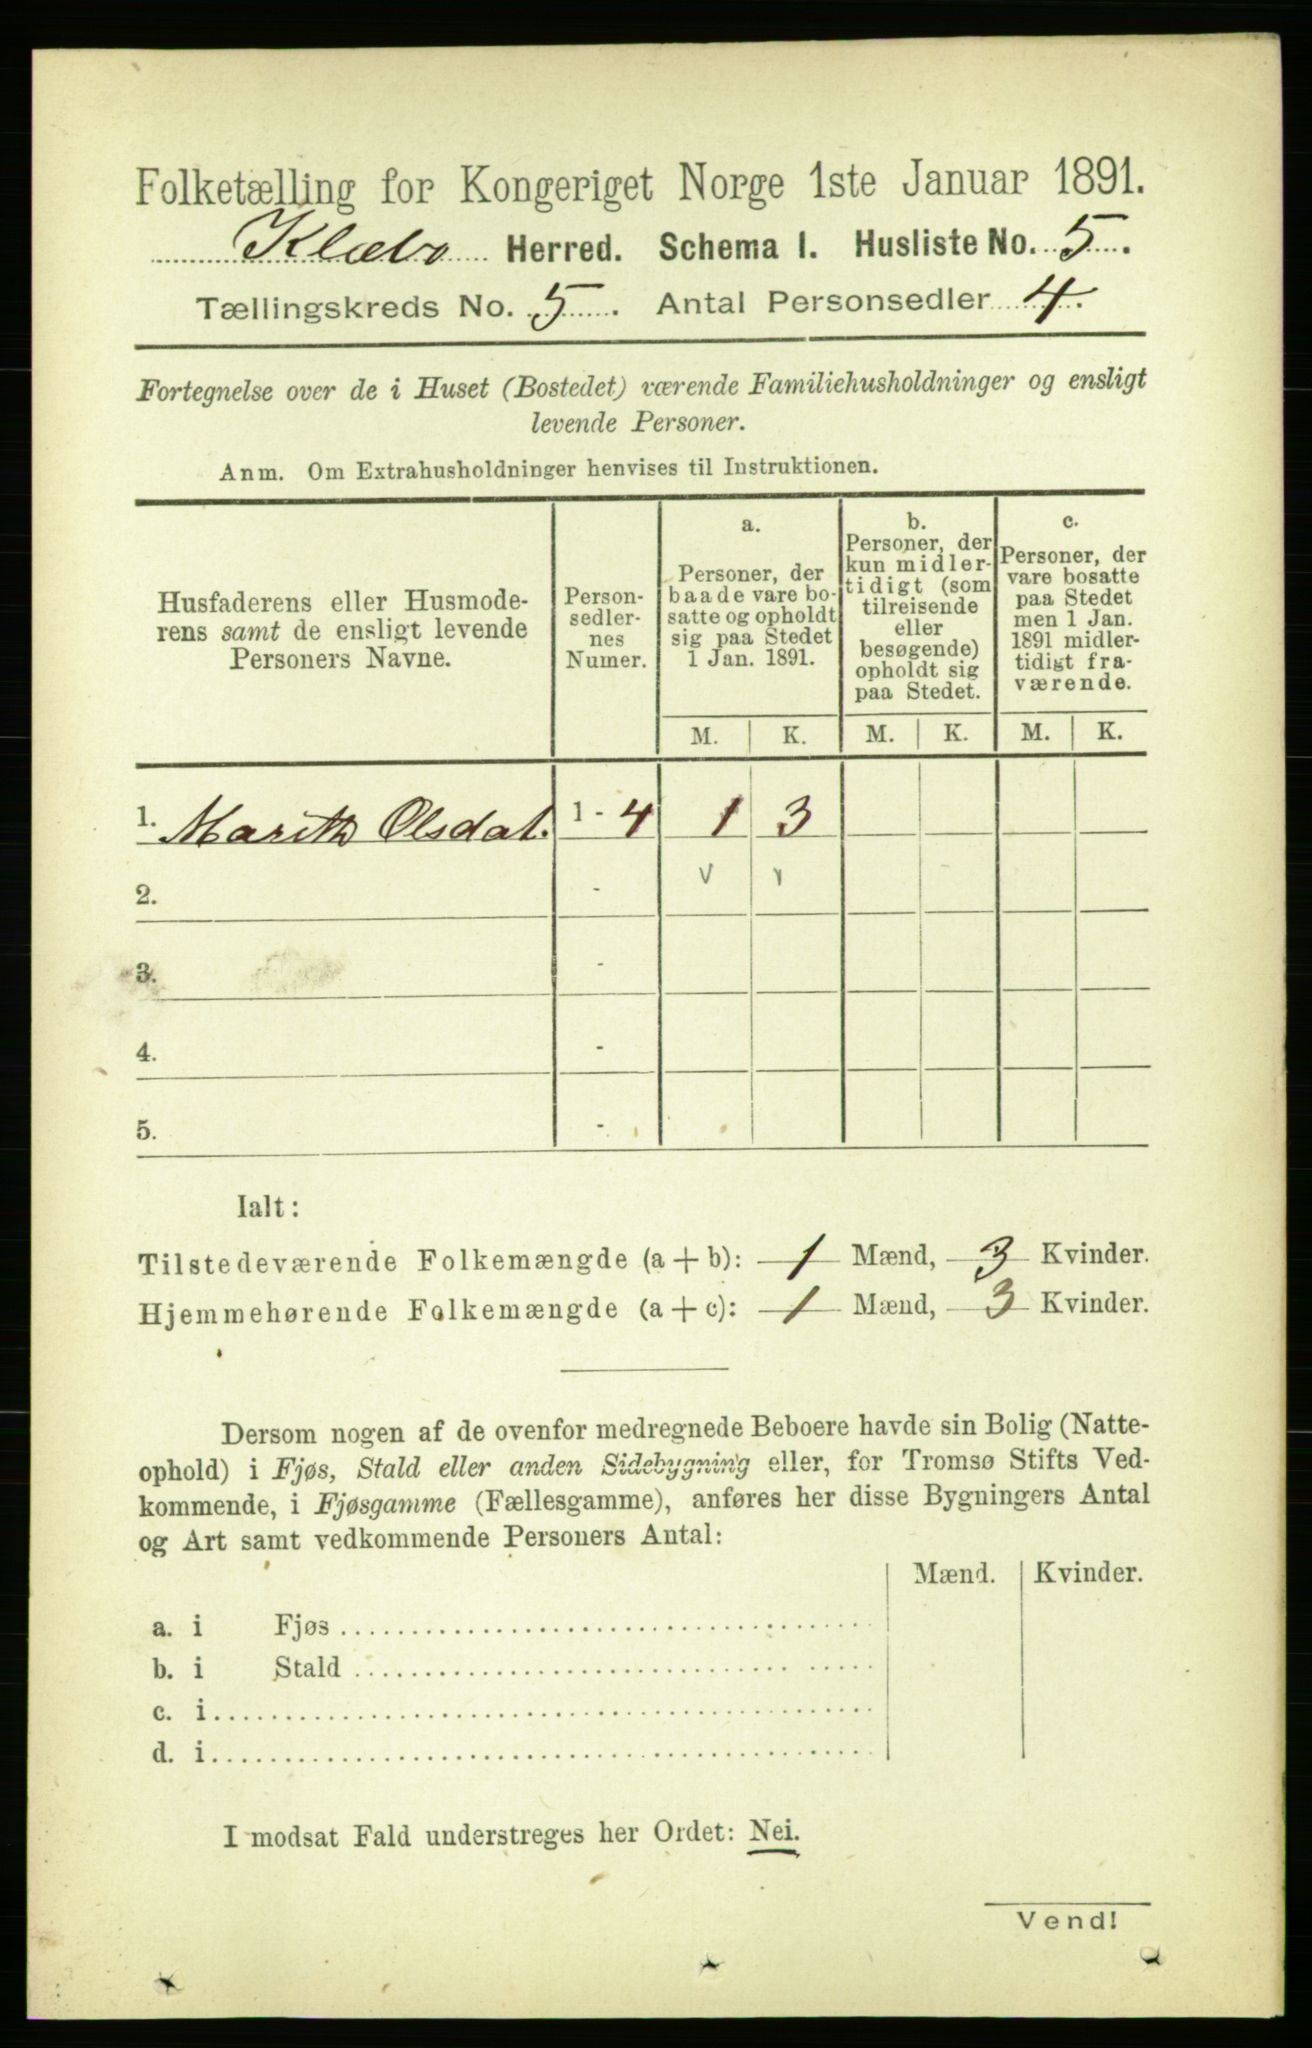 Folketælling for Kongeriget Norge 1ste Januar 1891.
Klæbo Herred. Schema I. Husliste No. 5.
Tællingskreds No. 5. Antal Personsedler 4.
Fortegnelse over de i Huset (Bostedet) værende Familiehusholdninger og ensligt
levende Personer.
Anm. Om Extrahusholdninger henvises til Instruktionen.
Husfaderens eller Husmode-
rens samt de ensligt levende
Personers Navne.
Person-
sedler-
nes
Numer.
a.
Personer, der
baade vare bo-
satte og opholdt
sig paa Stedet
1 Jan. 1891.
b.
Personer, der
kun midler-
tidigt (som
tilreisende
eller
besøgende)
opholdt sig
paa Stedet.
c.
Personer, der
vare bosatte
paa Stedet
men 1 Jan.
1891 midler-
tidigt fra-
værende.
M. K. M. K. M. K.
1. Marith Olsdat. 1 - 4 1 3
2. - v v
3. -
4. -
5. -
Ialt:
Tilstedeværende Folkemængde (a + b): 1 Mænd, 3 Kvinder.
Hjemmehørende Folkemængde (a + c): 1 Mænd, 3 Kvinder.
Dersom nogen af de ovenfor medregnede Beboere havde sin Bolig (Natte-
ophold) i Fjøs, Stald eller anden Sidebygning eller, for Tromsø Stifts Ved-
kommende, i Fjøsgamme (Fællesgamme), anføres her disse Bygningers Antal
og Art samt vedkommende Personers Antal:
Mænd. Kvinder.
a. i Fjøs
b. i Stald
c. i
d. i
I modsat Fald understreges her Ordet: Nei.
Vend!